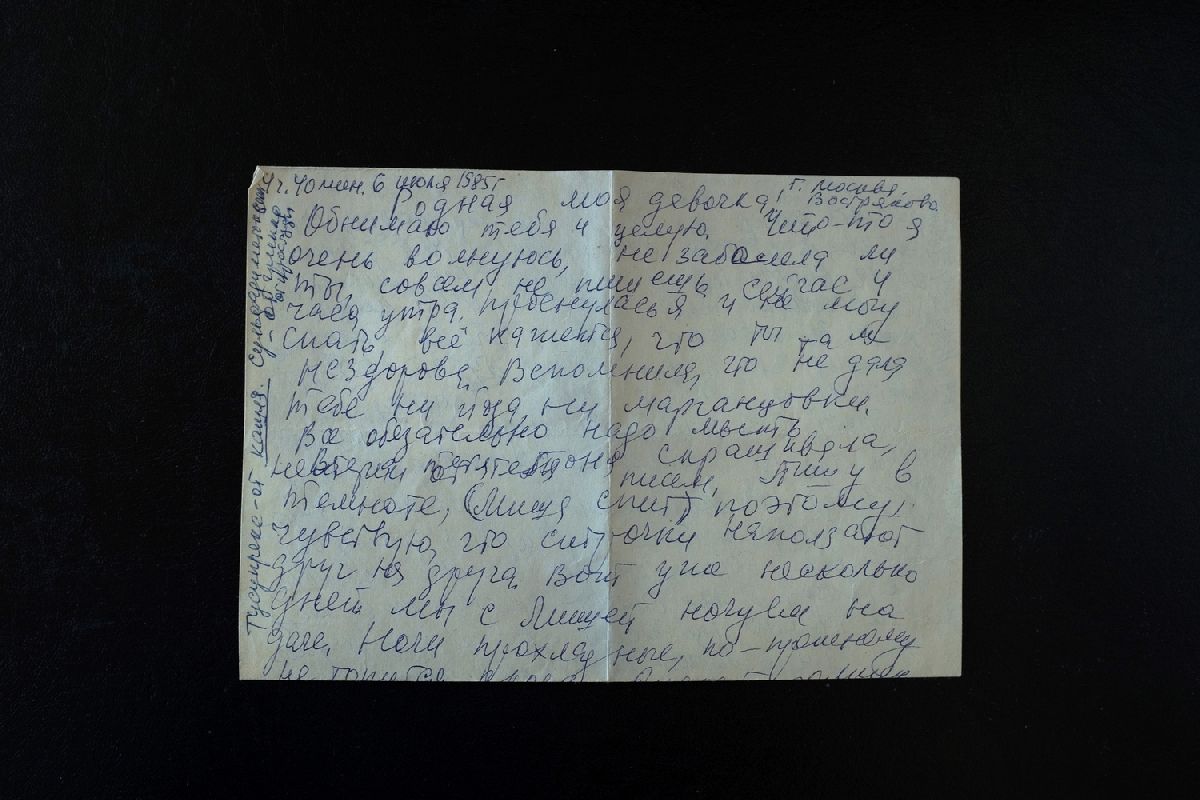 4 ч. 40 мин. 6 июля 1985 г
г. Москва,
Вострякова
Родная моя девочка!
Обнимаю тебя и целую. Что-то я
очень волнуюсь, не заболела ли
ты, совсем не пишешь. Сейчас 4
часа утра. Проснулась я и не могу
спать, всё кажется, что ты там
нездорова. Вспомнила, что не дала
тебе ни йода, ни марганцовки.
Всё обязательно надо мыть
спрашивала,
нет писем. Пишу в
темноте, (Миша спит) поэтому,
чувствую, что строчки наползают
друг на друга. Вот уже несколько
дней мы с Мишей ночуем на
даче. Ночи прохладные, по-прежнему
не
Тусупрекс - от кашля. Сульфадиметоксин
- от гриппа